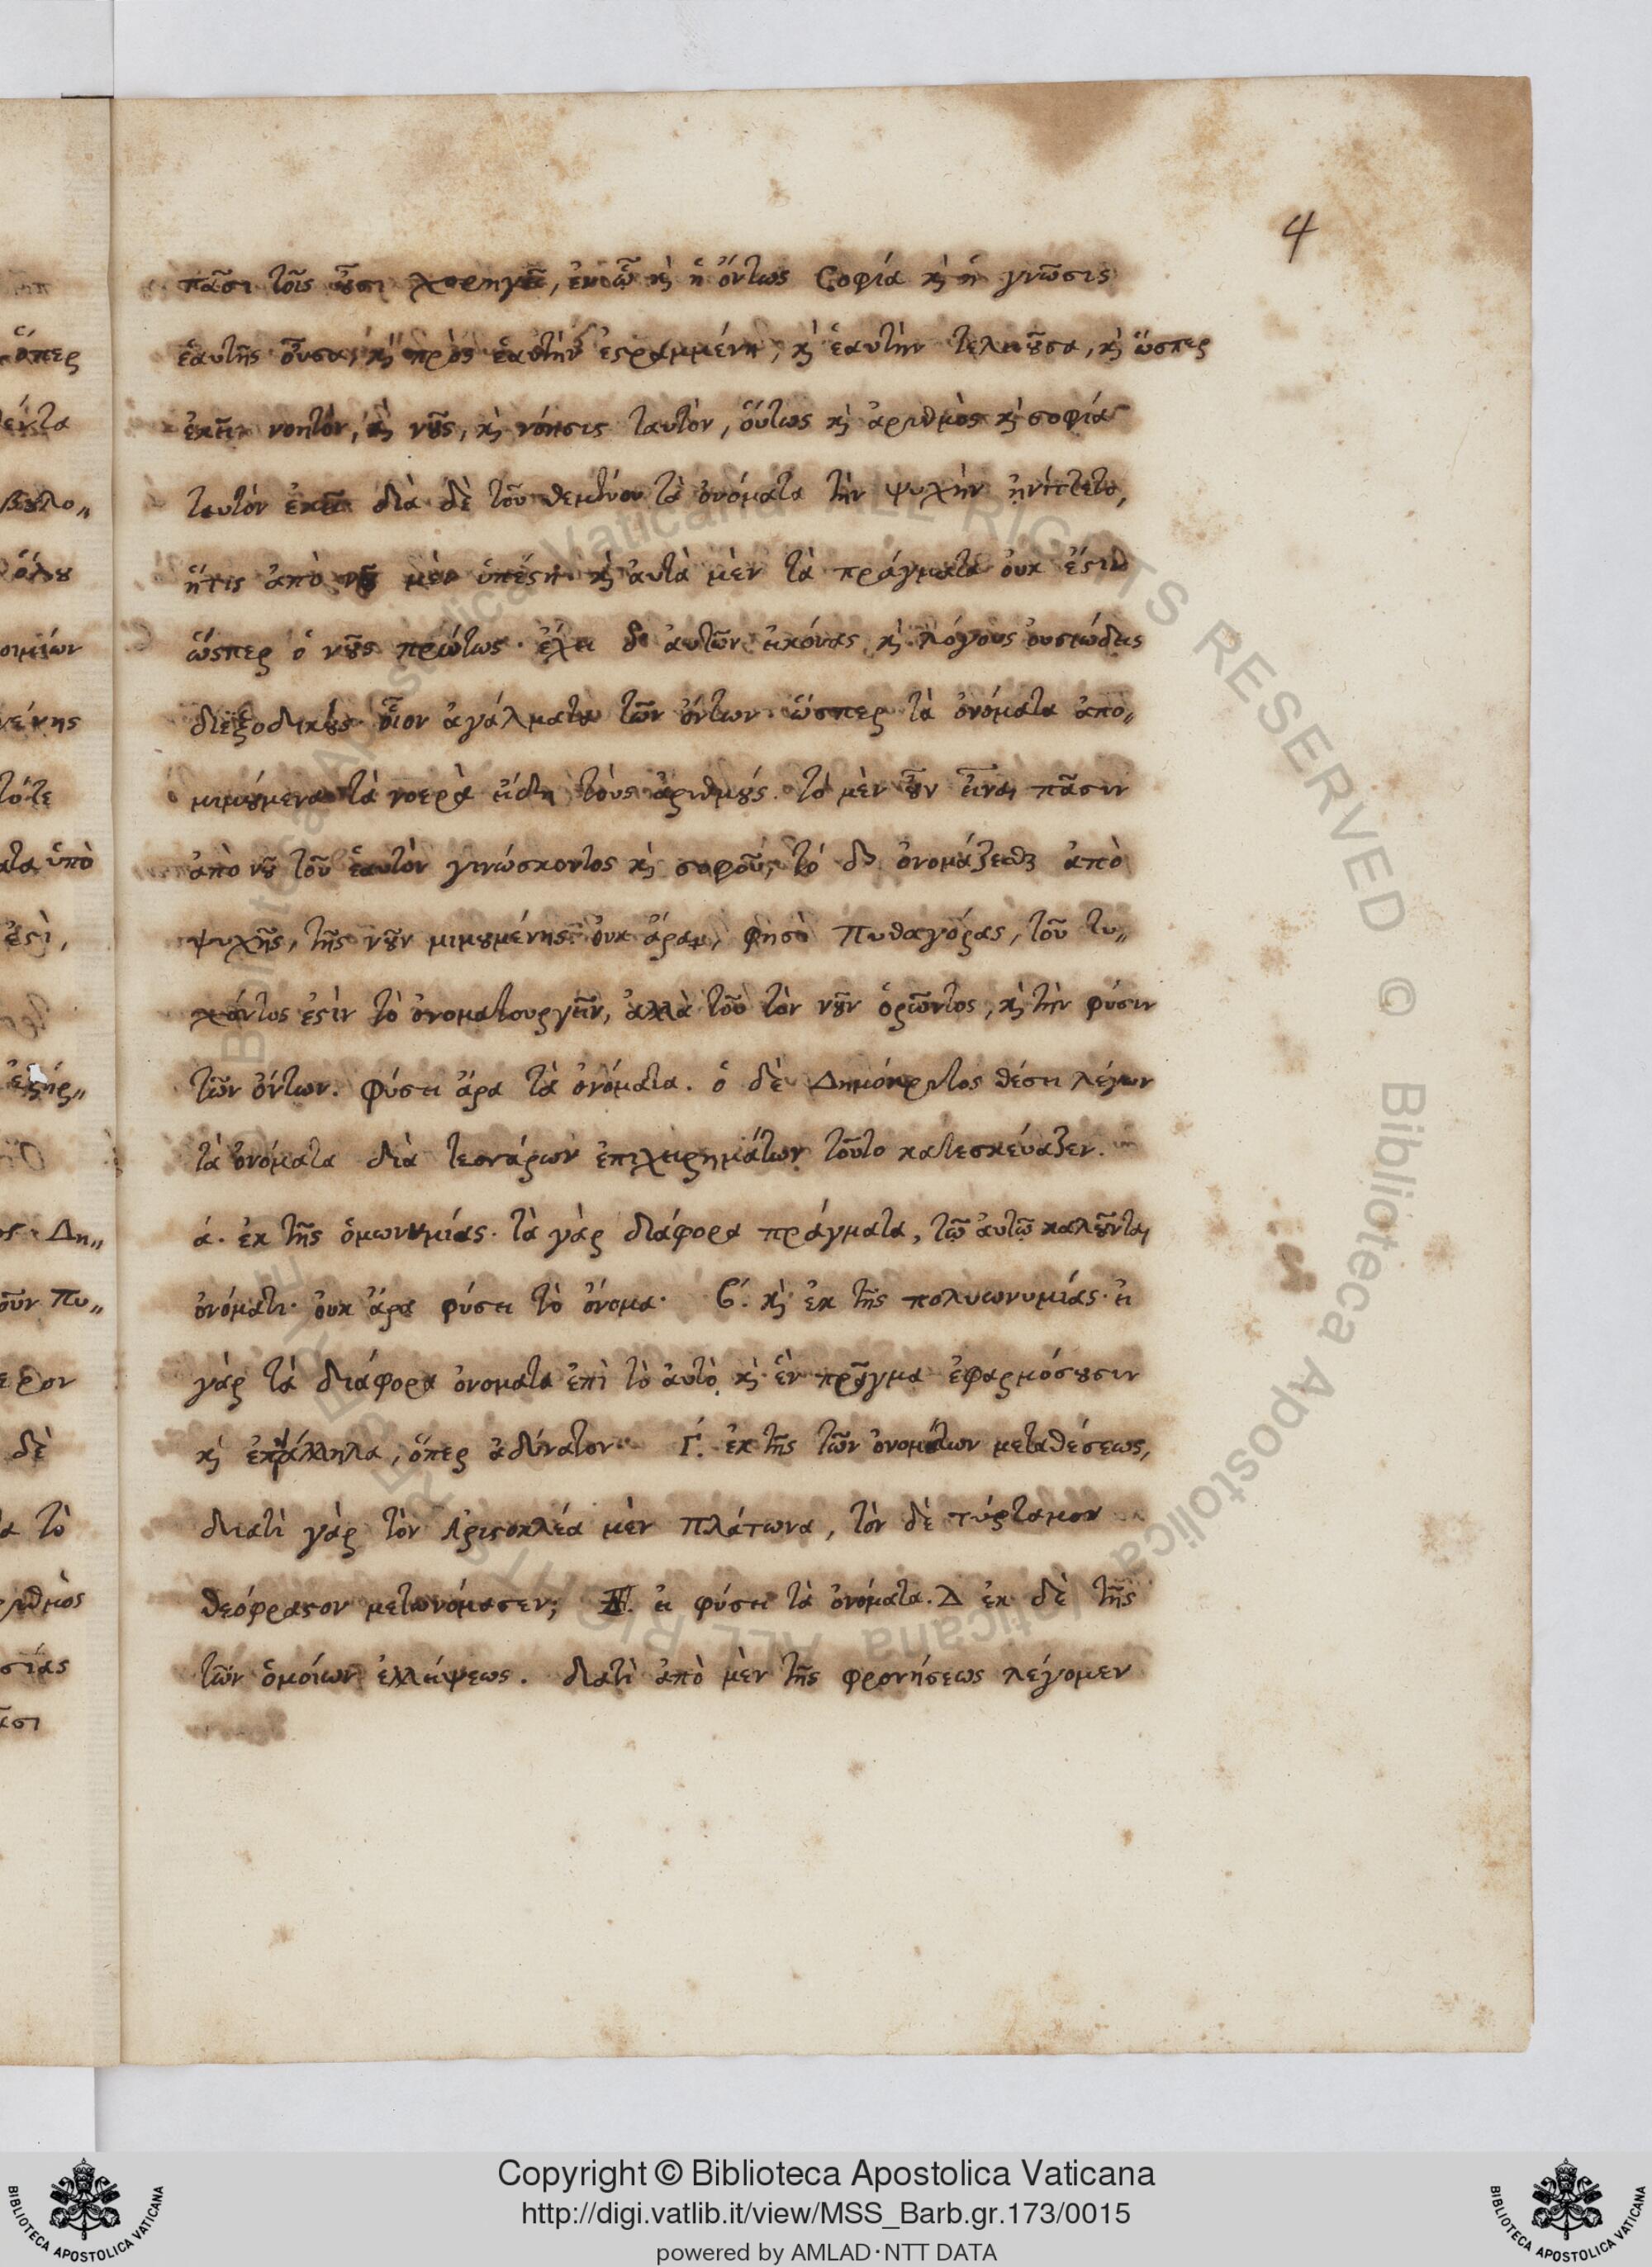 4
πᾶσι τοῖς οὖσι χορηγεῖ, ἐν ᾧ καὶ ἡ ὄντως σοφία καὶ ἡ γνῶσις
ἑαυτῆς οὖσα, καὶ πρὸς ἑαυτὴν ἐστραμμένη, καὶ ἑαυτὴν τελειοῦσα, καὶ ὥσπερ
ἐκεῖ νοητὸν, καὶ νοῦς, καὶ νόησις ταυτὸν, οὕτως καὶ ἀριθμὸς καὶ σοφία
ταυτὸν ἐκεῖ διὰ δὲ τοῦ θεμένου τὰ ὀνόματα τὴν ψυχὴν ᾐνίττετο,
ἥτις ἀπὸ νοῦ μὲν ὑπέστη καὶ αὐτὰ μὲν τὰ πράγματα οὐκ ἔστιν
ὥσπερ ὁ νοῦς πρώτως. ἔχει δ' αὐτῶν εἰκόνας καὶ λόγους οὐσιώδεις
διεξοδικοὺς οἷον ἀγάλματα τῶν ὄντων ὥσπερ τὰ ὀνόματα ἀπο„
μιμούμενα τὰ νοερὰ εἴδη τοὺς ἀριθμούς. τὸ μὲν οὖν εἶναι πᾶσιν
ἀπὸ νοῦ τοῦ ἑαυτὸν γινώσκοντος καὶ σοφοῦ, τὸ δ' ὀνομάζεσθαι ἀπὸ
ψυχῆς, τῆς νοῦν μιμουμένης. οὐκ ἄρα, φησὶ Πυθαγόρας, τοῦ τυ„
χόντος ἐστὶν τὸ ὀνοματουργεῖν, ἀλλὰ τοῦ τὸν νοῦν ὁρῶντος, καὶ τὴν φύσιν
τῶν ὄντων. φύσει ἄρα τὰ ὀνόματα. ὁ δὲ Δημόκριτος θέσει λέγων
τὰ ὀνόματα διὰ τεσσάρων ἐπιχειρημάτων τοῦτο κατεσκεύαζεν.
ά. ἐκ τῆς ὁμωνυμίας. τὰ γὰρ διάφορα πράγματα, τῷ αὐτῷ καλοῦνται
ὀνόματι. οὐκ ἄρα φύσει τὸ ὄνομα. β'. καὶ ἐκ τῆς πολυωνυμίας. εἰ
γὰρ τὰ διάφορα ὀνοματα ἐπὶ τὸ αὐτὸ καὶ ἓν πρᾶγμα ἐφαρμόσουσιν
καὶ ἐπάλληλα, ὅπερ ἀδύνατον. Γ'. ἐκ τῆς τῶν ὀνομάτων μεταθέσεως,
διατὶ γὰρ τὸν Ἀριστοκλέα μὲν Πλάτωνα, τὸν δὲ τύρταμον
θεόφραστον μετωνόμασεν; εἰ φύσει τὰ ὀνόματα. Δ ἐκ δὲ τῆς
τῶν ὁμοίων ἐλλείψεως. διατὶ ἀπὸ μὲν τῆς φρονήσεως λέγομεν
Copyright © Biblioteca Apostolica Vaticana
http://digi.vatlib.it/view/MSS_Barb.gr.173/0015
powered by AMLAD·NTT DATA